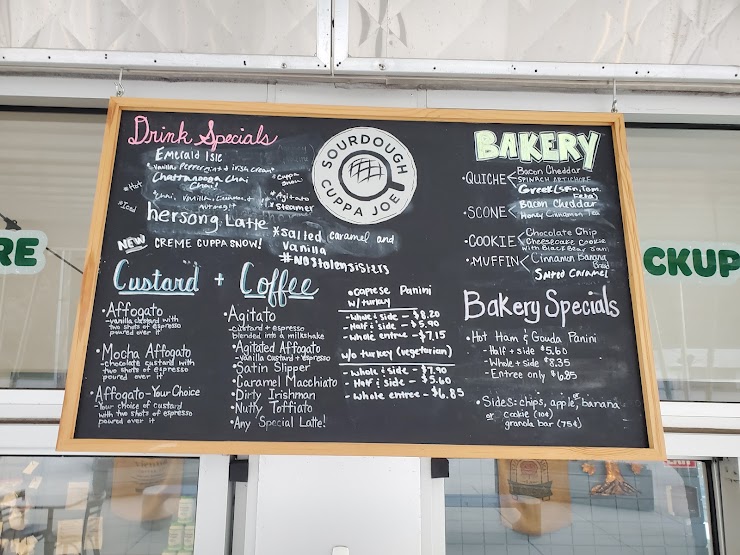 Drink Specials
Emerald Isle
*Vanilla Peppermint & Irish Cream*
Chattanooga Chai
Chai!
*Chai, Vanilla, Cinnamon &
nutmeg*
*Hot
*Iced
*Cuppa
Snow!
*Agitato
*Steamer
hersong Latte *salted caramel and
vanilla
#NoStolenSisters
NEW CREME CUPPA SNOW!
SOURDOUGH
CUPPA JOE
BAKERY
•QUICHE Bacon Cheddar
SPINACH ARTICHOKE
Greek (Spin, Tom,
Feta)
•SCONE Bacon Cheddar
Honey Cinnamon Tea
•COOKIE Chocolate Chip
Cheesecake Cookie
with Blackberry Jam
•MUFFIN Cinnamon Banana
Bread
Salted Caramel
Custard + Coffee
•Affogato
-vanilla custard with
two shots of espresso
poured over it
•Mocha Affogato
-chocolate custard with
two shots of espresso
poured over it
•Affogato-Your Choice
-Your choice of custard
with two shots of espresso
poured over it
•Agitato
-custard + espresso
blended into a milkshake
•Agitated Affogato
-vanilla custard + espresso
•Satin Slipper
•Caramel Macchiato
•Dirty Irishman
•Nutty Toffiato
•Any Special Latte!
•caprese Panini
w/turkey
- Whole & Side - $8.20
- Half & side - $5.90
- Whole entree - $7.15
w/o turkey (vegetarian)
- Whole & side - $7.90
- Half & side - $5.60
- Whole entree - $6.85
Bakery Specials
•Hot Ham & Gouda Panini
- Half + side $5.60
- Whole + side $8.35
- Entree only $6.85
•Sides: chips, apple, or banana
or cookie (10¢)
granola bar (75¢)
RE
CKUP